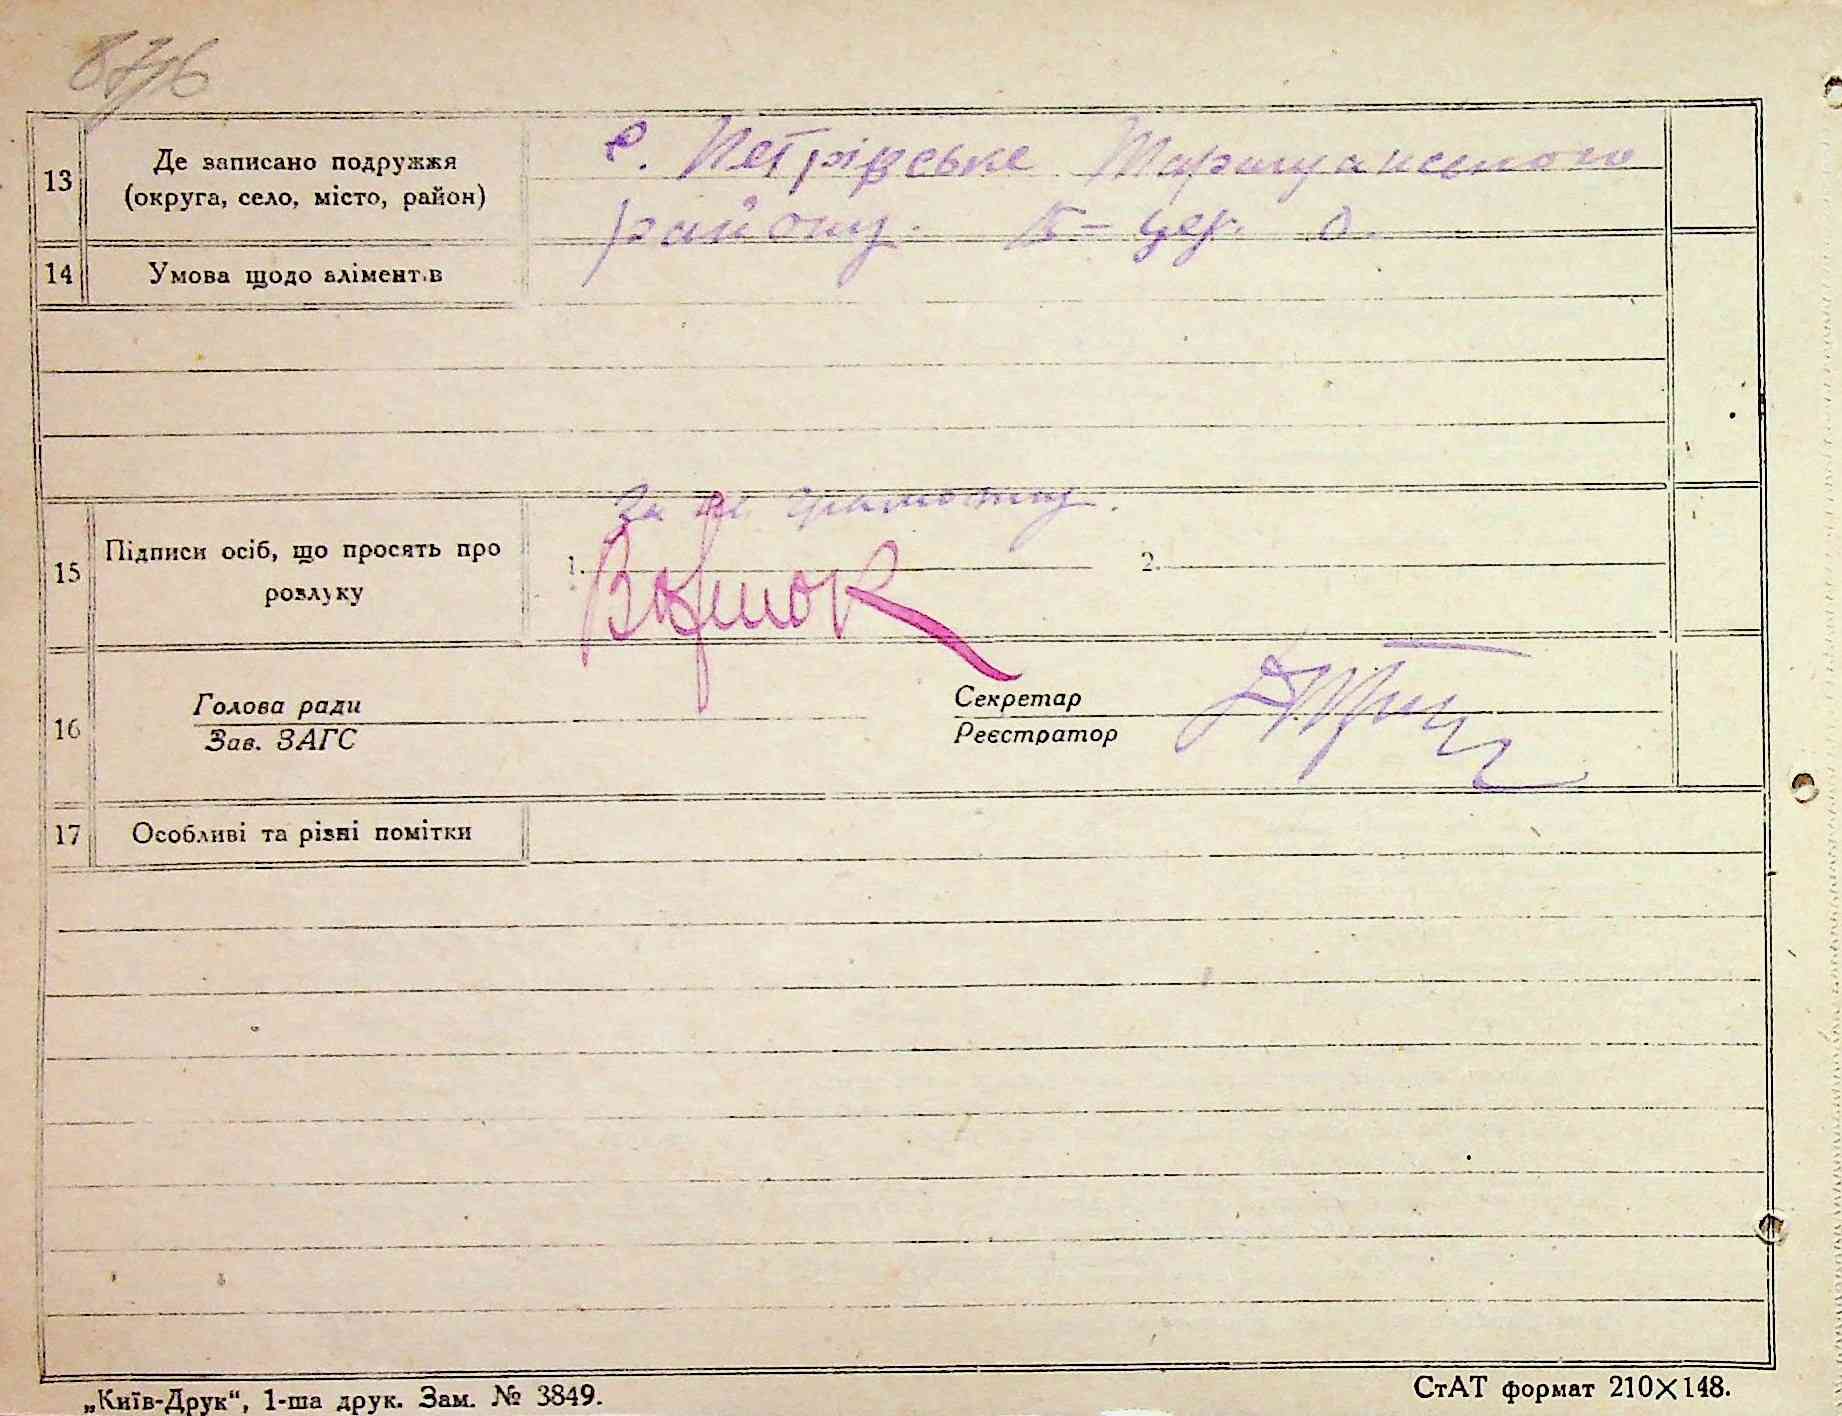 13 Де записано подружжя
(округа, село, місто, район)
с. Петрівське Таращанського
району.
14 Умова щодо аліментів
За не грамотну.
15 Підписи осіб, що просять про
розлуку
1. 2.
16 Голова ради
Зав. ЗАГС
Секретар
Реєстратор
17 Особливі та різні помітки
„Київ-Друк“, 1-ша друк. Зам. № 3849.
СтАТ формат 210×148.